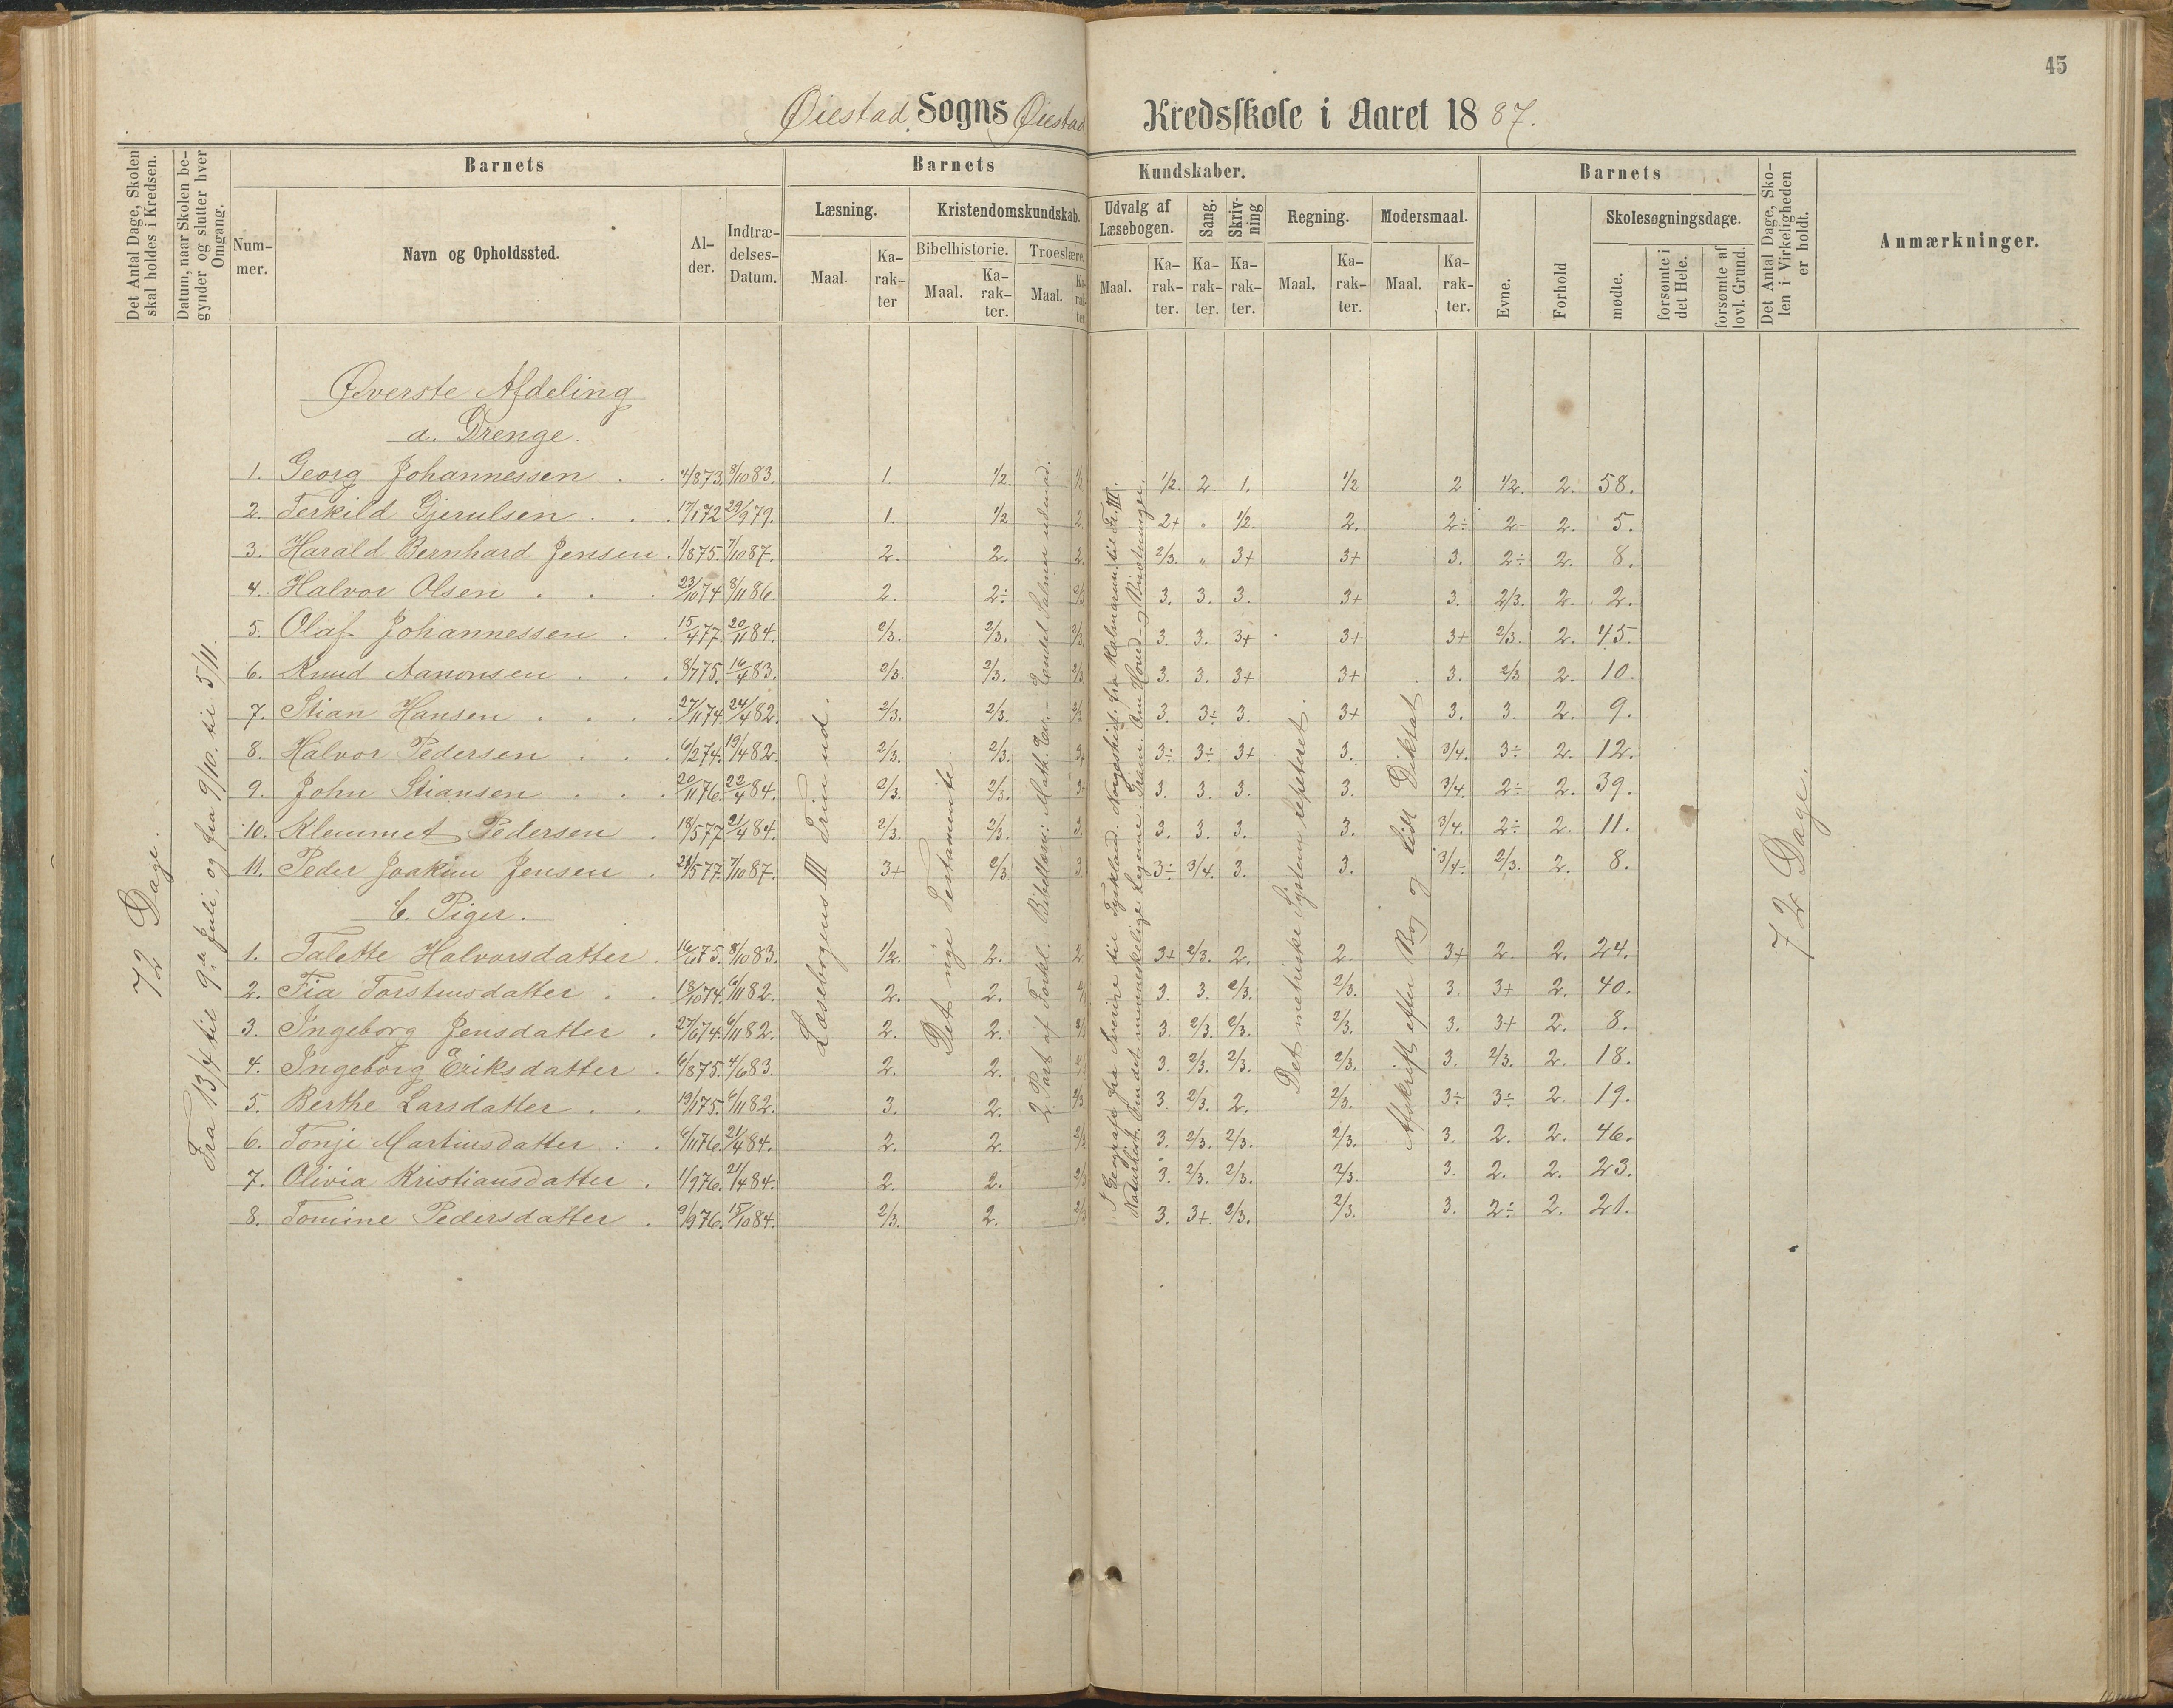 45
Øiestad Sogns Øiestad Kredsskole i Aaret 1887.
Det Antal Dage, Skolen skal holdes i Kredsen.
Datum, naar Skolen begynder og slutter hver Omgang.
Barnets
Nummer.
Navn og Opholdssted.
Alder.
Indtrædelses-Datum.
Barnets Kundskaber.
Læsning.
Maal.
Karakter
Kristendomskundskab.
Bibelhistorie.
Maal.
Karakter.
Troeslære.
Maal.
Karakter
Udvalg af Læsebogen.
Maal.
Karakter.
Sang.
Karakter.
Skrivning
Karakter.
Regning.
Maal.
Karakter.
Modersmaal.
Maal.
Karakter.
Barnets
Evne.
Forhold
Skolesøgningsdage.
mødte.
forsømte i det Hele.
forsømte af lovl. Grund.
Det Antal Dage, Skolen i Virkeligheden er holdt.
Anmærkninger.
72 Dage.
Fra 13/4 til 9de Juli, og fra 9/10. til 5/11.
Øverste Afdeling
a. Drenge.
1. Georg Johannessen . . 4/873. 8/1083. 1. 1/2. 1/2 1/2. 2. 1. 1/2 2 1/2. 2. 58.
2. Terkild Gjerulsen . . . 17/172 29/979. 1. 1/2 2. 2+ " 1/2. 2. 2÷ 2- 2. 5.
3. Harald Bernhard Jensen . 1/875. 7/1087. 2. 2. 2. 2/3. " 3+ 3+ 3. 2÷ 2. 8.
4. Halvor Olsen . . . 23/1074 8/1186. 2. 2÷ 2/3 3. 3. 3. 3+ 3. 2/3. 2. 2.
5. Olaf Johannessen . . 15/477. 20/1184. 2/3. 2/3. 2/3. 3. 3. 3+ 3+ 3+ 2/3. 2. 45.
6. Knud Aanonsen . . . 8/775. 16/483. 2/3. 2/3. 2/3 3. 3. 3+ 3+ 3. 2/3 2. 10.
7. Stian Hansen . . . . 27/1174. 24/482. 2/3. 2/3. 2/3 3. 3÷ 3. 3+ 3. 3. 2. 9.
8. Halvor Pedersen . . . 6/274. 19/482. 2/3. 2/3. 3+ 3÷ 3÷ 3+ 3. 3/4. 3÷ 2. 12.
9. John Stiansen . . . 20/1176. 22/484. 2/3. 2/3. 3+ 3. 3. 3. 3. 3/4. 2÷ 2. 39.
10. Klemmet Pedersen . 18/577 21/484. 2/3. 2/3. 3. 3. 3. 3. 3. 3/4. 2÷ 2. 11.
11. Peder Joakim Jensen . 28/577. 7/1087. 3+ 2/3 3. 3÷ 3/4. 3. 3. 3/4. 2/3. 2. 8.
b. Piger.
1. Talette Halvorsdatter . 16/675. 8/1083. 1/2. 2. 2 3+ 2/3. 2. 2. 3+ 2. 2. 24.
2. Fia Torstensdatter . . 18/1074. 6/1182. 2. 2. 3. 3. 2/3. 2/3. 3. 3+ 2. 40.
3. Ingeborg Jensdatter . 27/674. 6/1182. 2. 2. 3. 2/3. 2/3. 2/3. 3. 3+ 2. 8.
4. Ingeborg Eriksdatter . 6/875. 4/683. 2. 2. 3. 2/3. 2/3. 2/3. 3. 2/3. 2. 18.
5. Berthe Larsdatter . . 19/175. 6/1182. 3. 2. 2/3 3. 2/3. 2. 2/3. 3÷ 3÷ 2. 19.
6. Tonje Martinsdatter . . 6/1176. 21/484. 2. 2. 2/3 3. 2/3. 2/3. 2/3. 3. 2. 2. 46.
7. Olivia Kristiansdatter . 1/976. 21/484. 2. 2. 2/3 3. 2/3. 2/3. 2/3. 3. 2. 2. 23.
8. Tomine Pedersdatter . 9/976. 15/1084. 2/3. 2. 2/3 3. 3+. 2/3. 2/3. 3. 2÷ 2. 21.
Læsebogens III Trin ud.
Det nye Testamente
2. Part af Forkl. Bibellæsn: Math. Ev. - Endel Salmer udenad.
I Geografi fra Sverige til Tyskland. Norgeshist. fra Kalmarun. til Fr. III.
Naturhist. Om det menneskelige Legeme. Gram. Om Hoved- og Bisætninger.
Det metriske System repeteret.
Afskrift efter Bog og lidt Diktat
72 Dage.